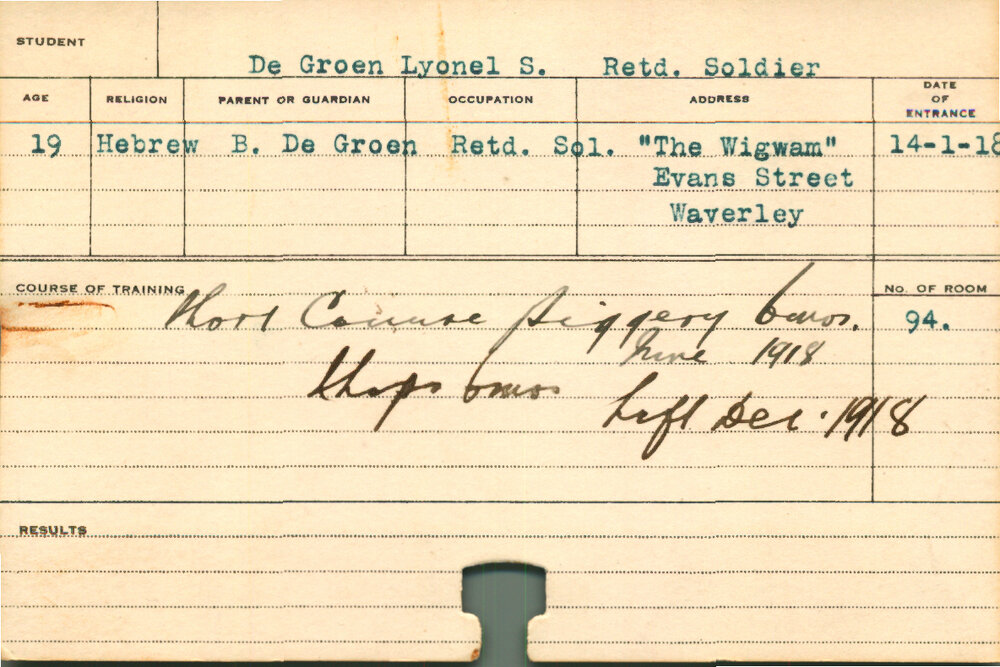 STUDENT
De Groen Lyonel S. Retd. Soldier
AGE RELIGION PARENT OR GUARDIAN OCCUPATION ADDRESS DATE OF ENTRANCE
19 Hebrew B. De Groen Retd. Sol. "The Wigwam" 14-1-18
Evans Street
Waverley
COURSE OF TRAINING No. OF ROOM
Short Course piggery 6 mos. 94.
June 1918
Shops 6 mos
Left Dec. 1918
RESULTS